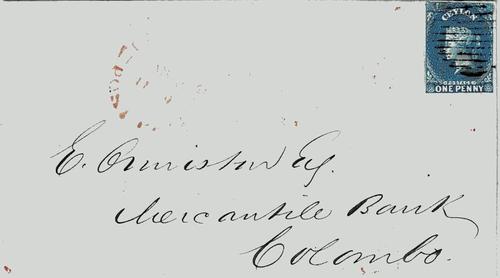 CEYLON
POSTAGE
ONE PENNY
E. Ormiston Esq.
Mercantile Bank
Colombo.